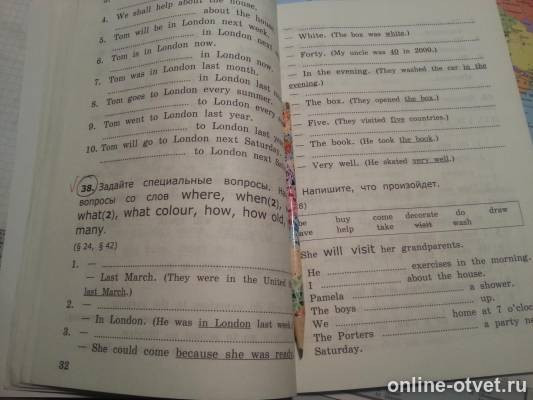 4. We shall help about the house.
............ about the house
5. Tom will be in London next week.
............ in London next
6. Tom is in London now.
............ in London now.
7. Tom was in London last month.
............ in London last
8. Tom goes to London every summer.
............ to London every
9. Tom went to London last year.
............ to London last year
10. Tom will go to London next Saturday.
............ to London next
38. Задайте специальные вопросы.
вопросы со слов where, when(2),
what(2), what colour, how, how old,
many.
(§ 24, § 42)
1. — ............
— Last March. (They were in the United
last March.)
2. — ............
— In London. (He was in London last week.
3. — ............
— She could come because she was ready
32
— White. (The box was white.)
— ............
— Forty. (My uncle was 40 in 2000.)
— ............
— In the evening. (They washed the car in the
evening.)
— ............
— The box. (They opened the box.)
— ............
— Five. (They visited five countries.)
— ............
— The book. (He took the book.)
— ............
— Very well. (He skated very well.)
Напишите, что произойдет.
be buy come decorate do draw
help take visit wash
She will visit her grandparents.
He ............ exercises in the morning.
I ............ about the house.
Pamela ............ a shower.
The boys ............ up.
We ............ home at 7 o'clock
The Porters ............ a party
Saturday.
online-otvet.ru